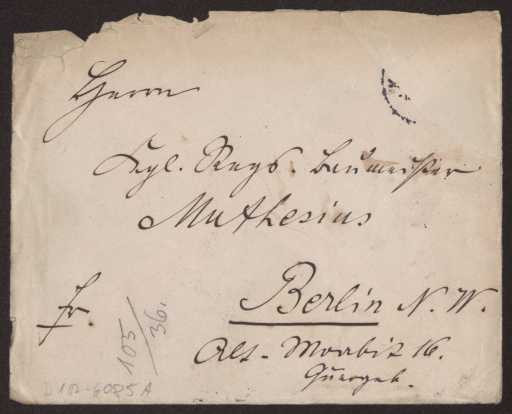 Herrn
Kgl. Regs. Baumeister
Muthesius
Berlin N. W.
Alt-Moabit 16.
Quergeb.
fr.
105/36.
D 102-6085 A